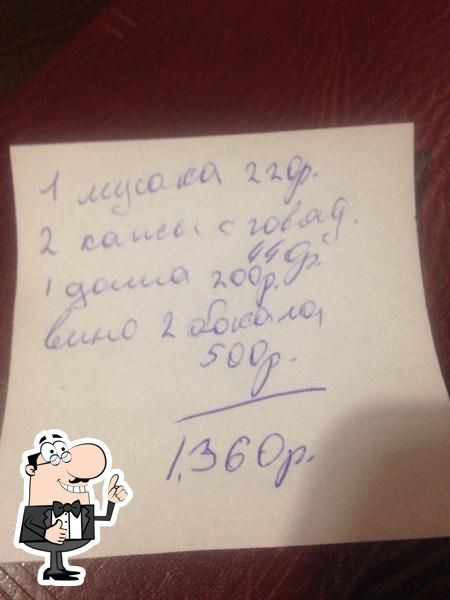 1 мусака 220р.
2 капсы с говяд.
440р.
1 долма 200р.
вино 2 бокала,
500р.
1,360р.